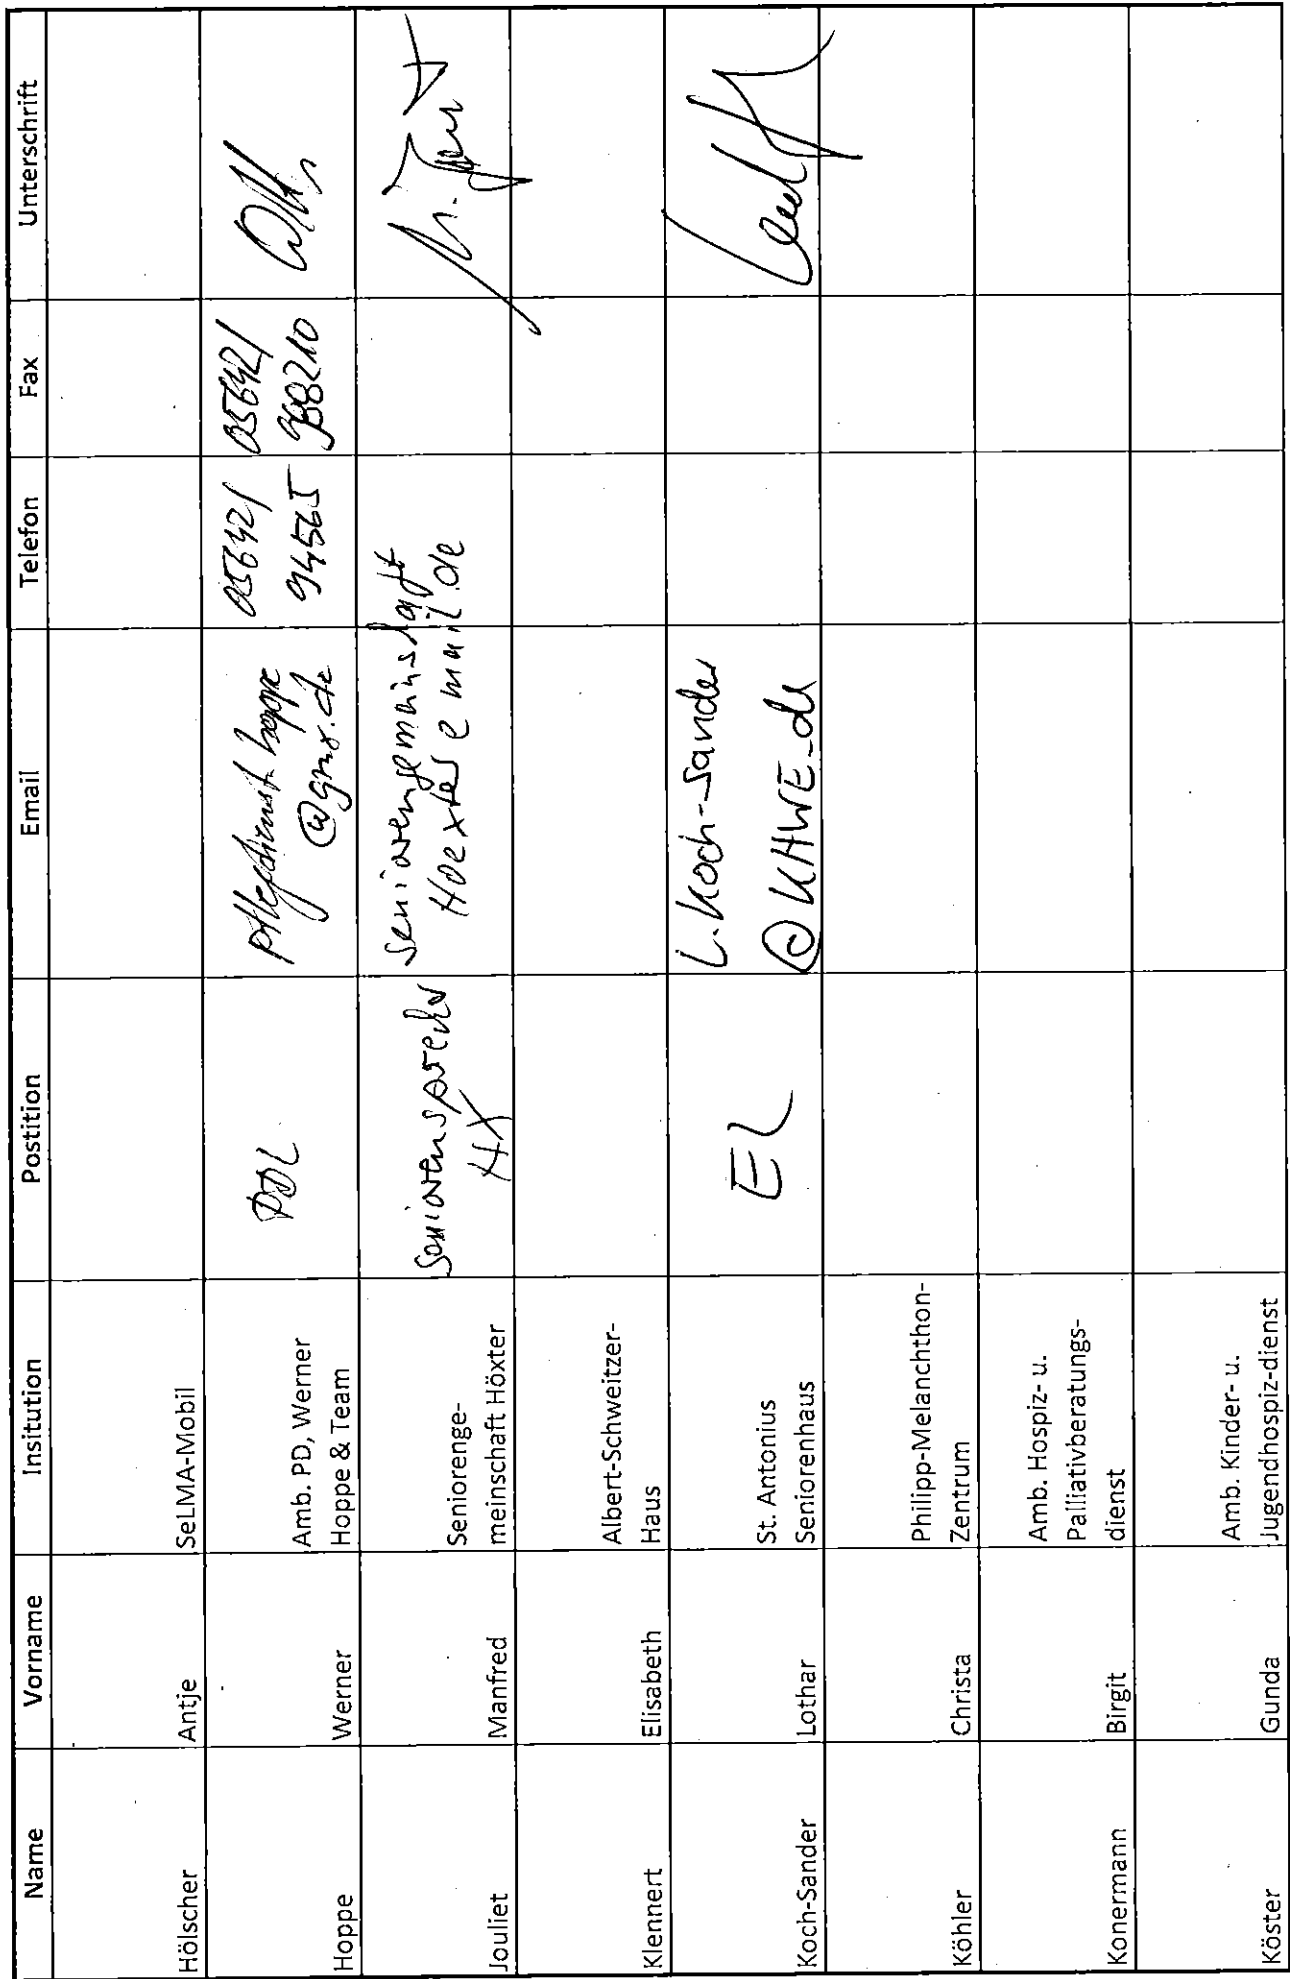 Name Vorname Insitution Postition Email Telefon Fax Unterschrift
Hölscher Antje SeLMA-Mobil
Hoppe Werner Amb. PD, Werner
Hoppe & Team PDL pflegedienst.hoppe
@gmx.de 05642/
94565 05642/
988210
Jouliet Manfred Seniorenge-
meinschaft Höxter Seniorensprecher
HX seniorengemeinschaft
Hoexter@mail.de
Klennert Elisabeth Albert-Schweitzer-
Haus
Koch-Sander Lothar St. Antonius
Seniorenhaus EL L.Koch-Sander
@KHWE.de
Köhler Christa Philipp-Melanchthon-
Zentrum
Konermann Birgit Amb. Hospiz- u.
Palliativberatungs-
dienst
Köster Gunda Amb. Kinder- u.
Jugendhospiz-dienst